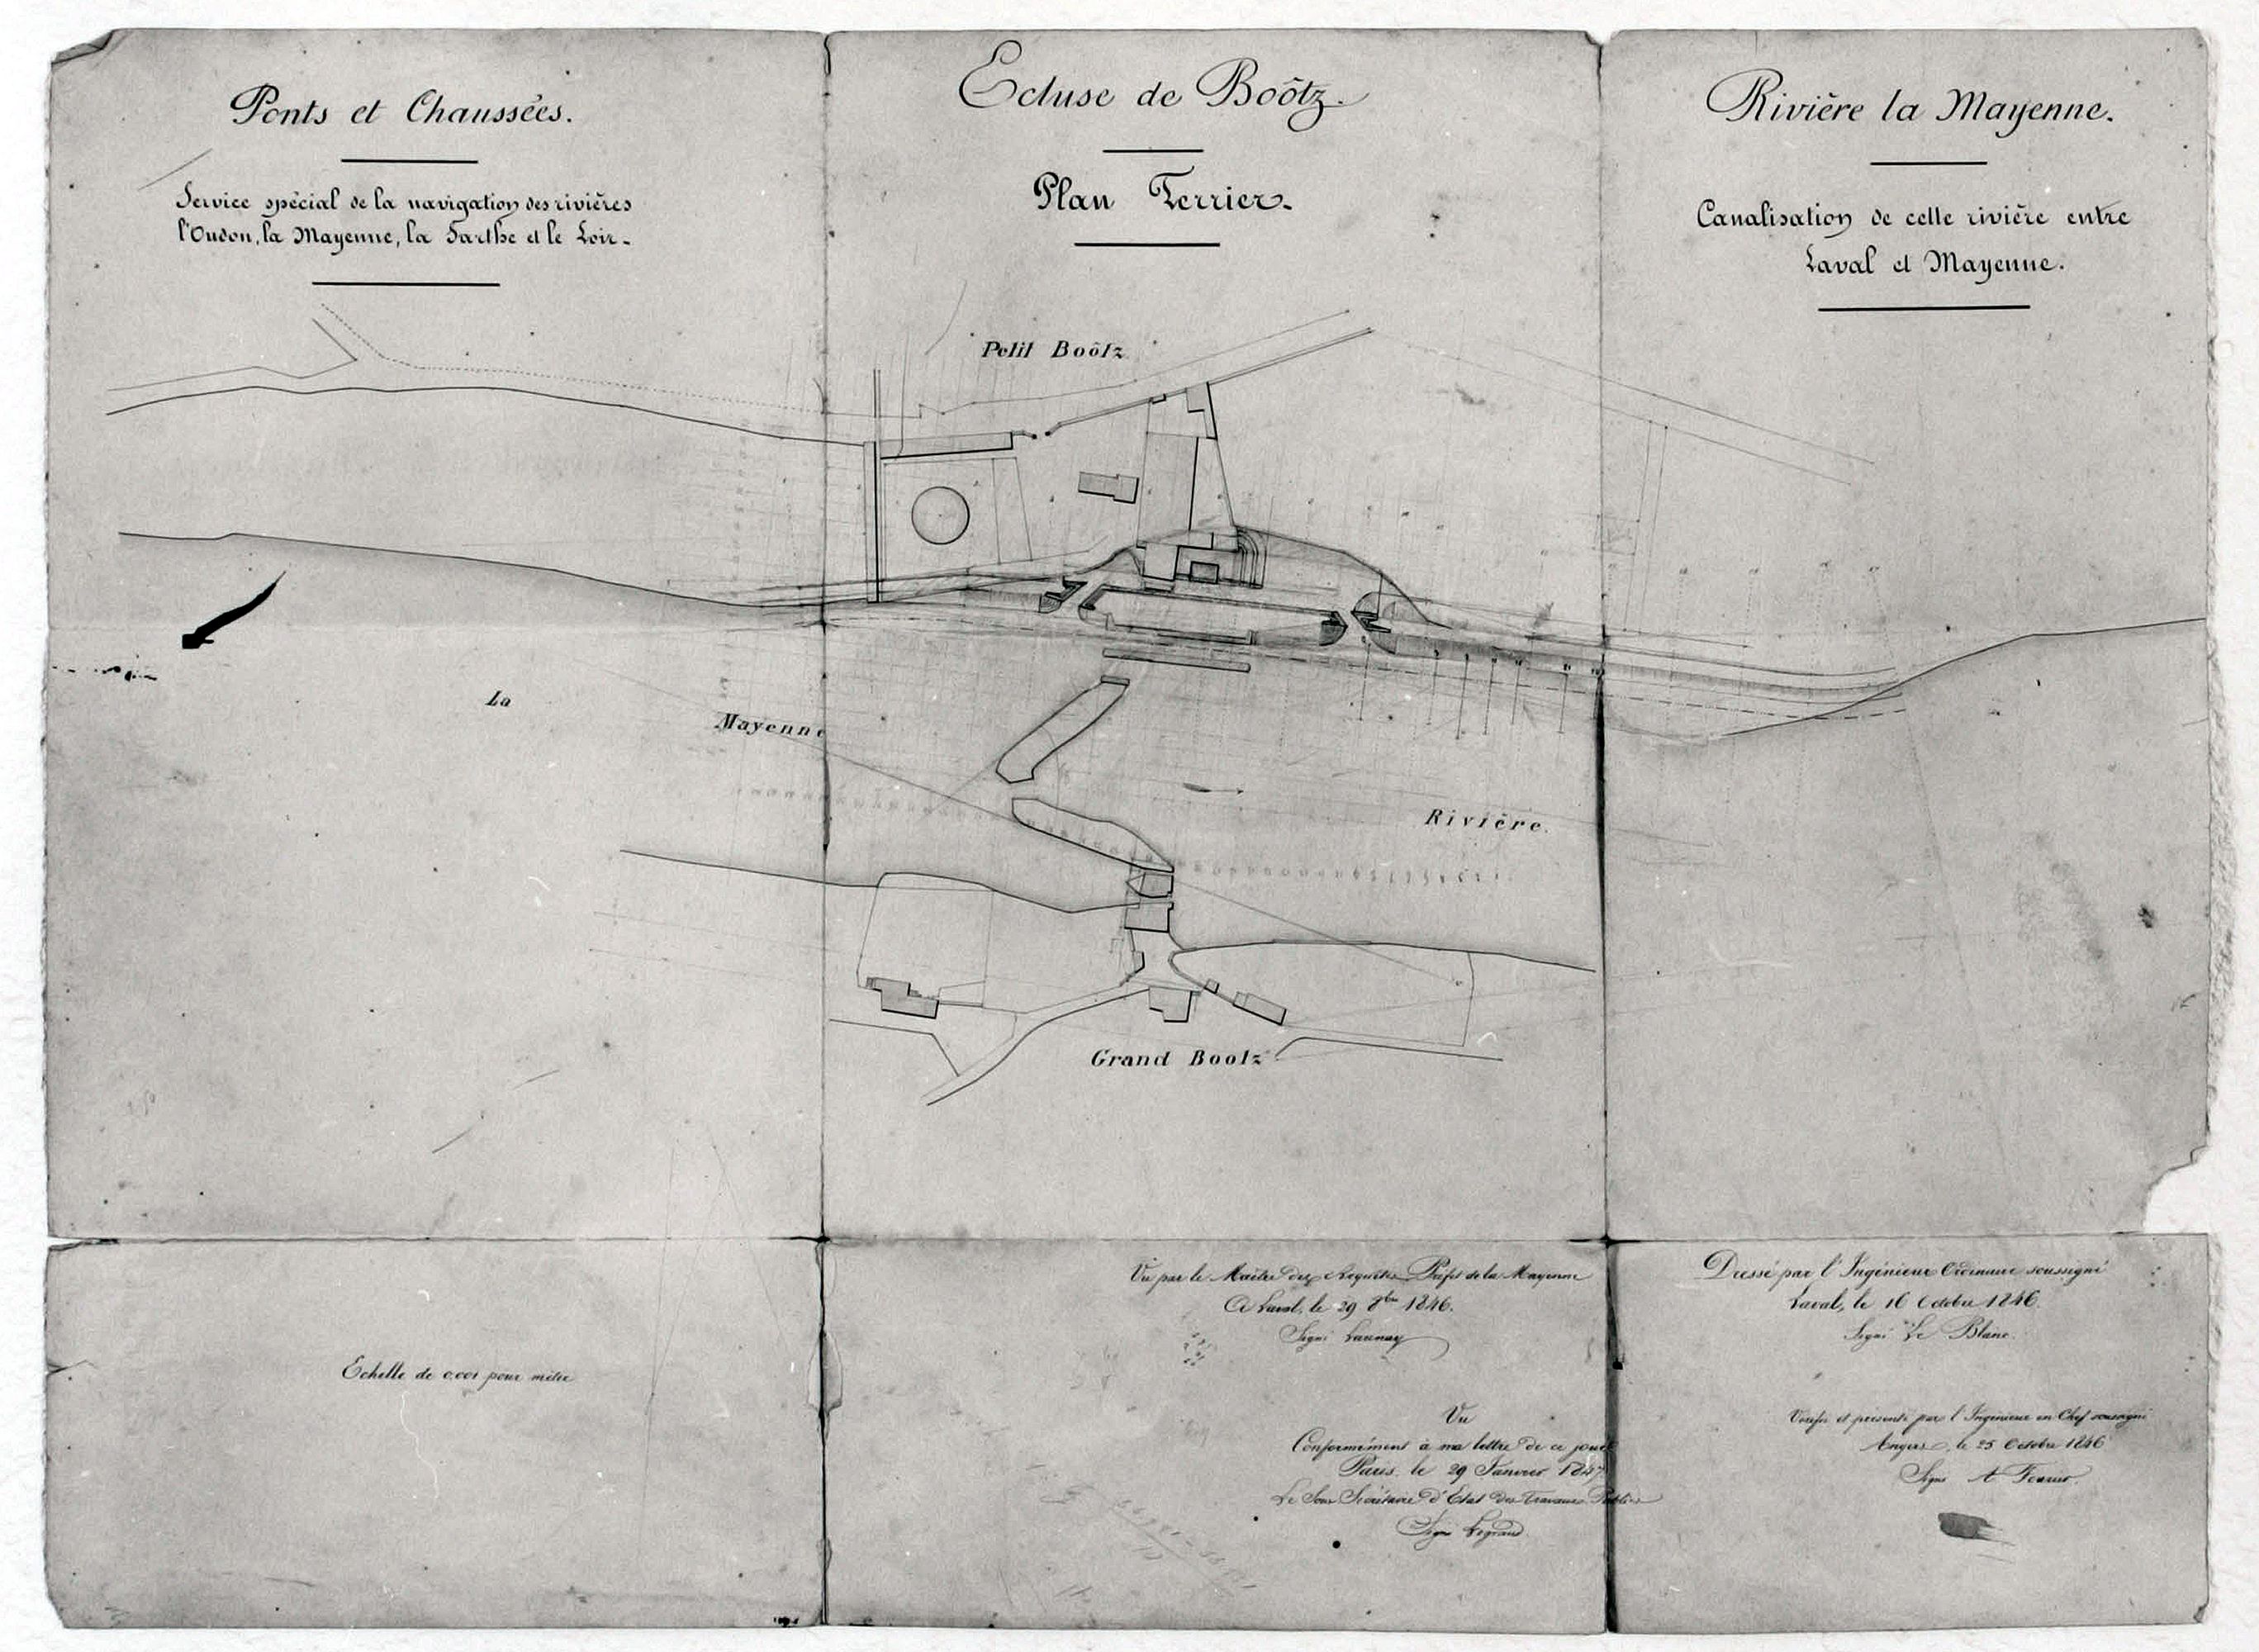 Ponts et Chaussées.
Service spécial de la navigation des rivières
l'Oudon, la Mayenne, la Sarthe et le Loir.
Ecluse de Boôtz.
Plan Terrier.
Rivière la Mayenne.
Canalisation de cette rivière entre
Laval et Mayenne.
Petit Boôtz
La
Mayenne
Rivière.
Grand Bootz
Echelle de 0.001 pour mètre
Vu par le Maître des Requêtes Préfet de la Mayenne
A Laval, le 29 8bre 1846.
Signé Launay
Vu
Conformément à ma lettre de ce jour
Paris, le 29 Janvier 1847
Le Sous Secrétaire d'Etat des Travaux Publics
Signé Legrand
Dressé par l'Ingénieur Ordinaire soussigné
Laval, le 16 Octobre 1846.
Signé Le Blanc.
Vérifié et présenté par l'Ingénieur en Chef soussigné
Angers, le 25 Octobre 1846
Signé